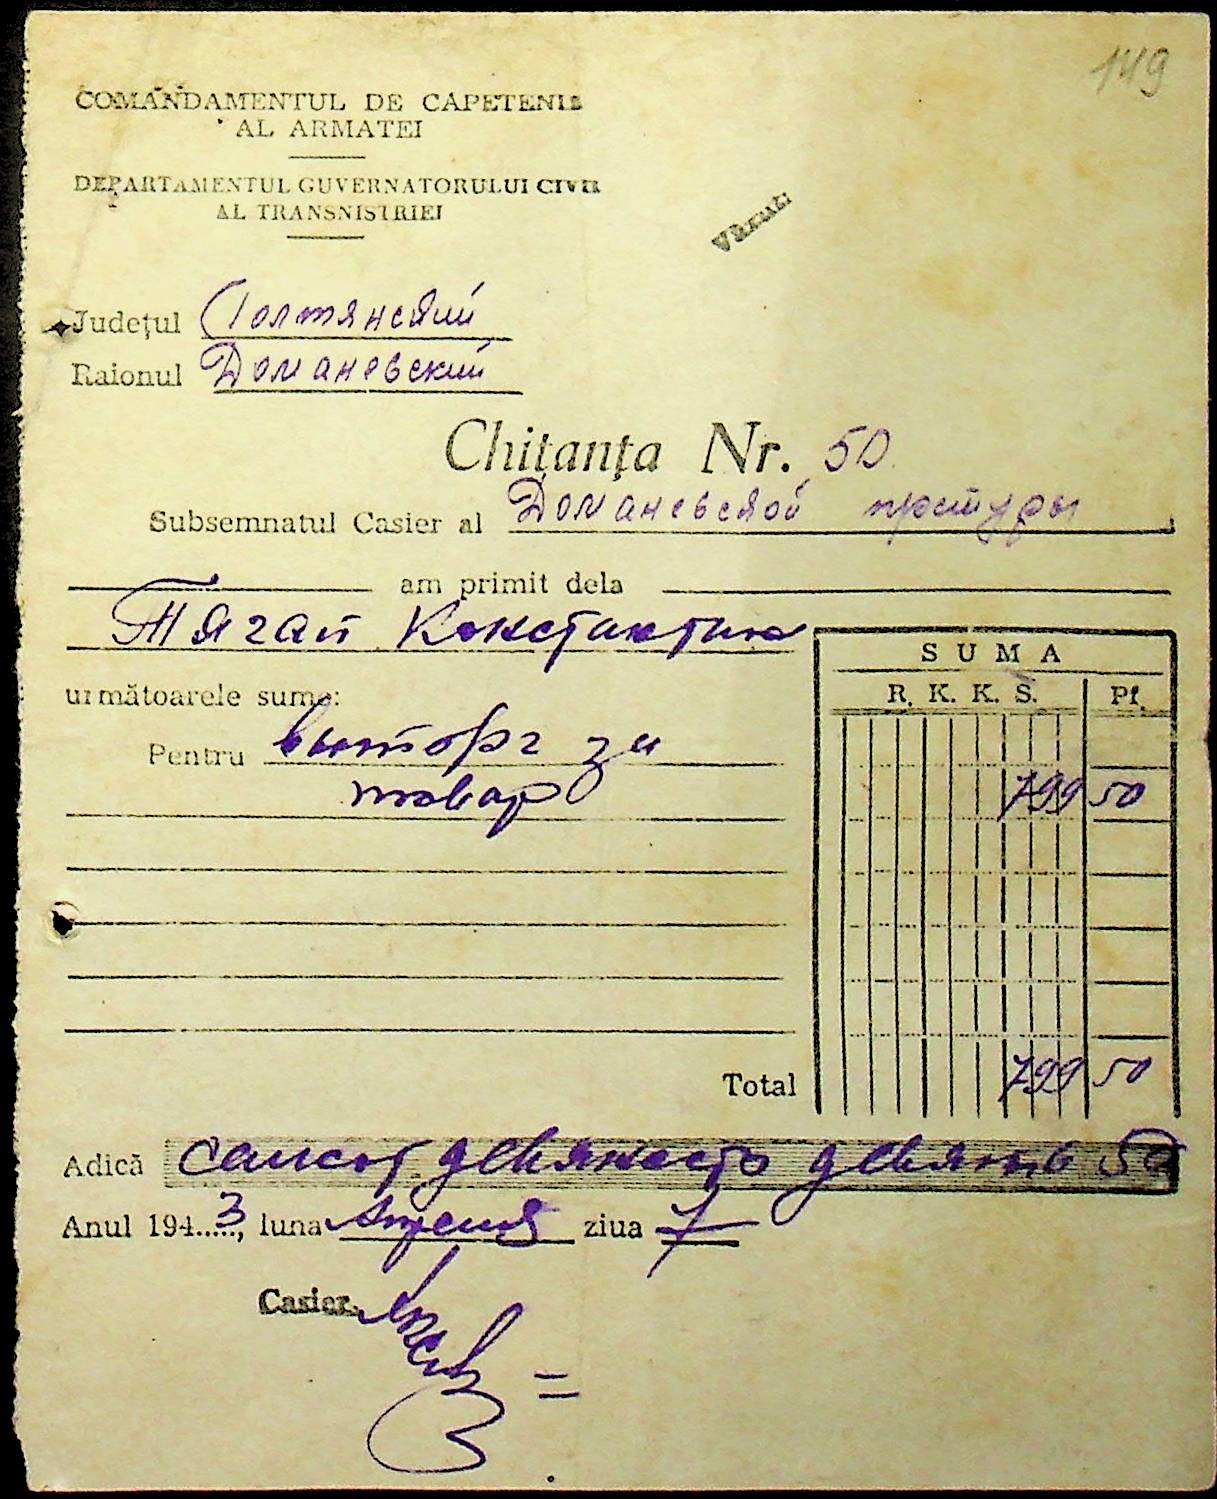 149
COMANDAMENTUL DE CAPETENIE
AL ARMATEI
DEPARTAMENTUL GUVERNATORULUI CIVIL
AL TRANSNISTRIEI
Vărsat:
Județul Голтянский
Raionul Доманевский
Chitanța Nr. 50
Subsemnatul Casier al Доманевской претуры
am primit dela
Тягай Константина
următoarele sume:
SUMA
R. K. K. S. Pf.
Pentru выторг за
товар 799 50
Total 799 50
Adică семсот девяносто девять 50
Anul 1943, luna Апреля ziua 7
Casier,